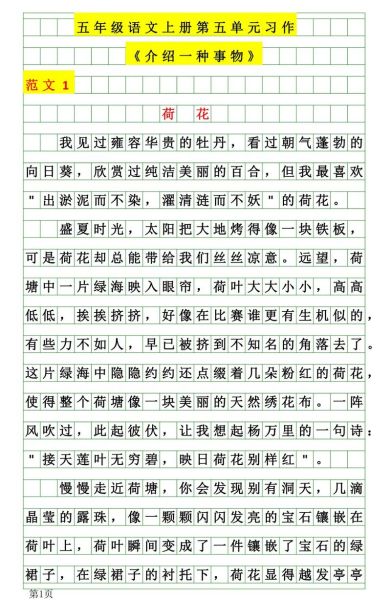 五年级语文上册第五单元习作
《介绍一种事物》
范文1
荷 花
我见过雍容华贵的牡丹，看过朝气蓬勃的
向日葵，欣赏过纯洁美丽的百合，但我最喜欢
"出淤泥而不染，濯清涟而不妖"的荷花。
盛夏时光，太阳把大地烤得像一块铁板，
可是荷花却总能带给我们丝丝凉意。远望，荷
塘中一片绿海映入眼帘，荷叶大大小小，高高
低低，挨挨挤挤，好像在比赛谁更有生机似的，
有些力不如人，早已被挤到不知名的角落去了。
这片绿海中隐隐约约还点缀着几朵粉红的荷花，
使得整个荷塘像一块美丽的天然绣花布。一阵
风吹过，此起彼伏，让我想起杨万里的一句诗：
"接天莲叶无穷碧，映日荷花别样红"。
慢慢走近荷塘，你会发现别有洞天，几滴
晶莹的露珠，像一颗颗闪闪发亮的宝石镶嵌在
荷叶上，荷叶瞬间变成了一件镶嵌了宝石的绿
裙子，在绿裙子的衬托下，荷花显得越发亭亭
第1页